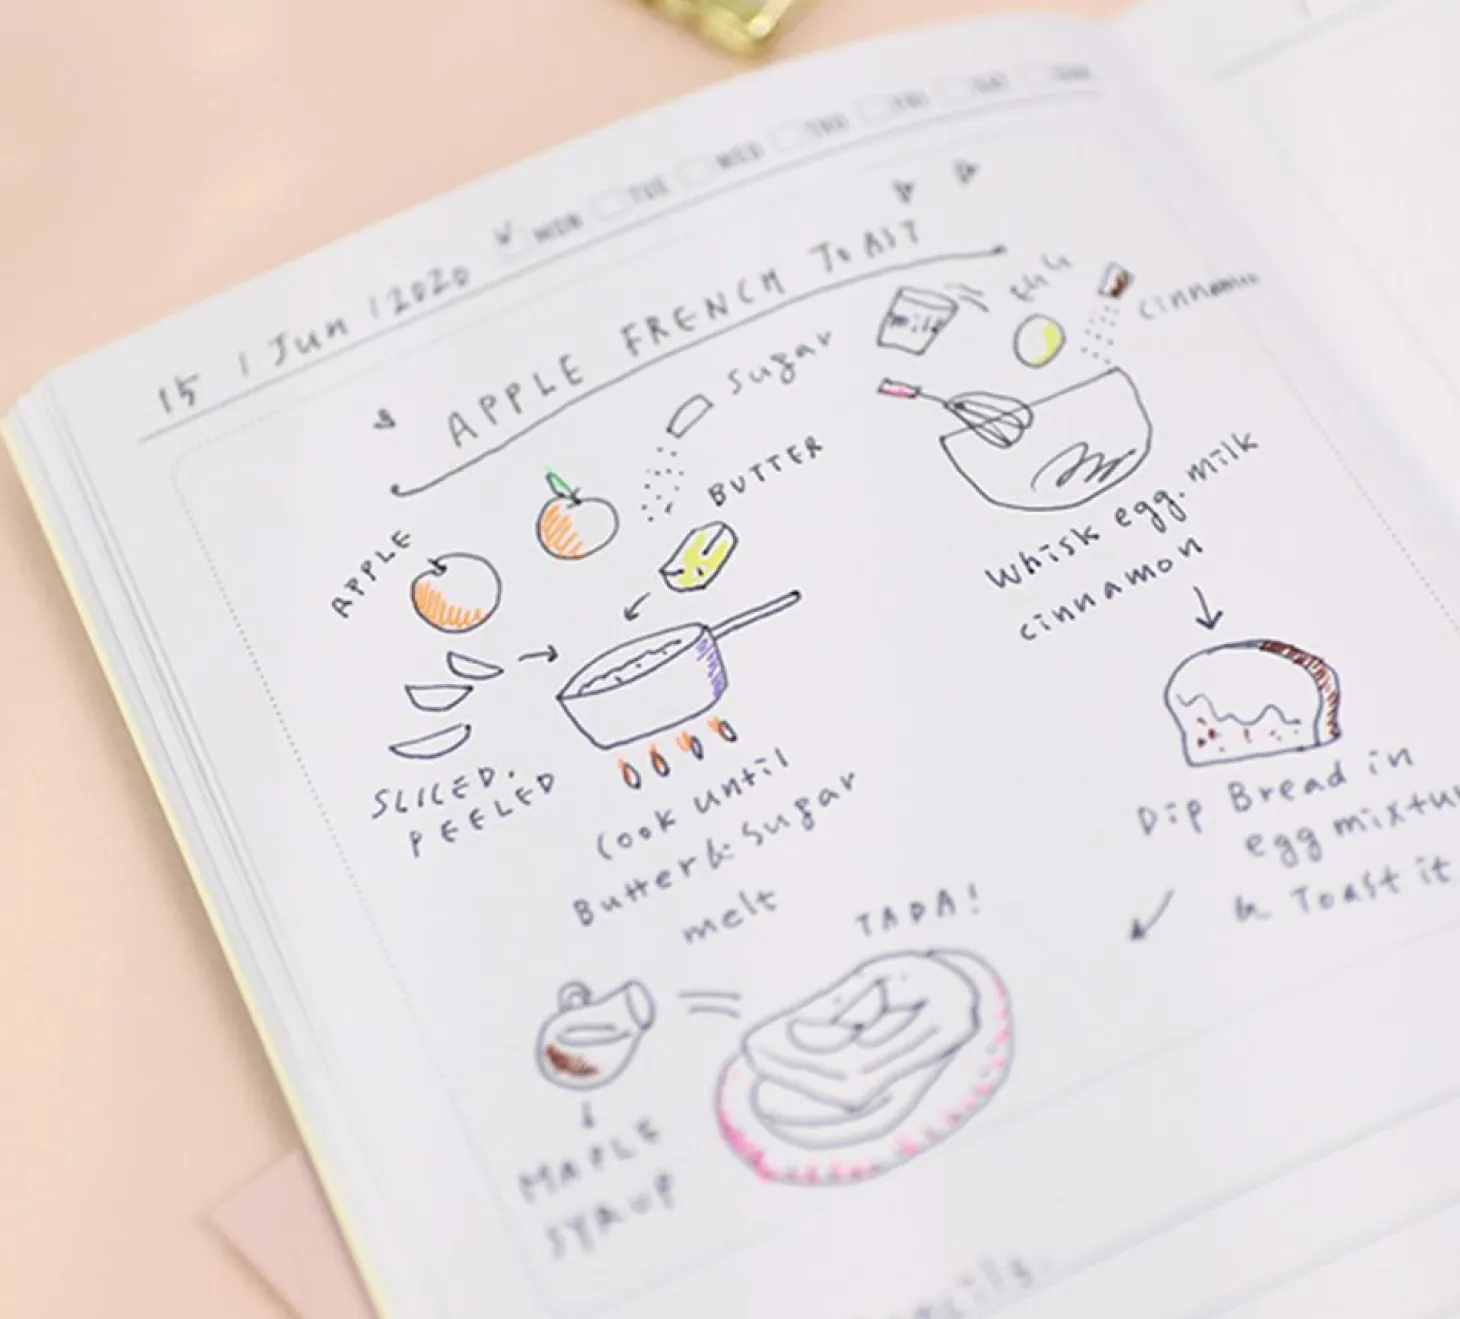 15 / Jun / 2020
MON TUE WED THU FRI SAT SUN
APPLE FRENCH TOAST
Sugar
BUTTER
APPLE
SLICED.
PEELED
Cook until
Butter & Sugar
melt
milk
egg
cinnamon
Whisk egg. milk
cinnamon
Dip Bread in
egg mixtur
& Toast it
TADA!
MAPLE
SYRUP